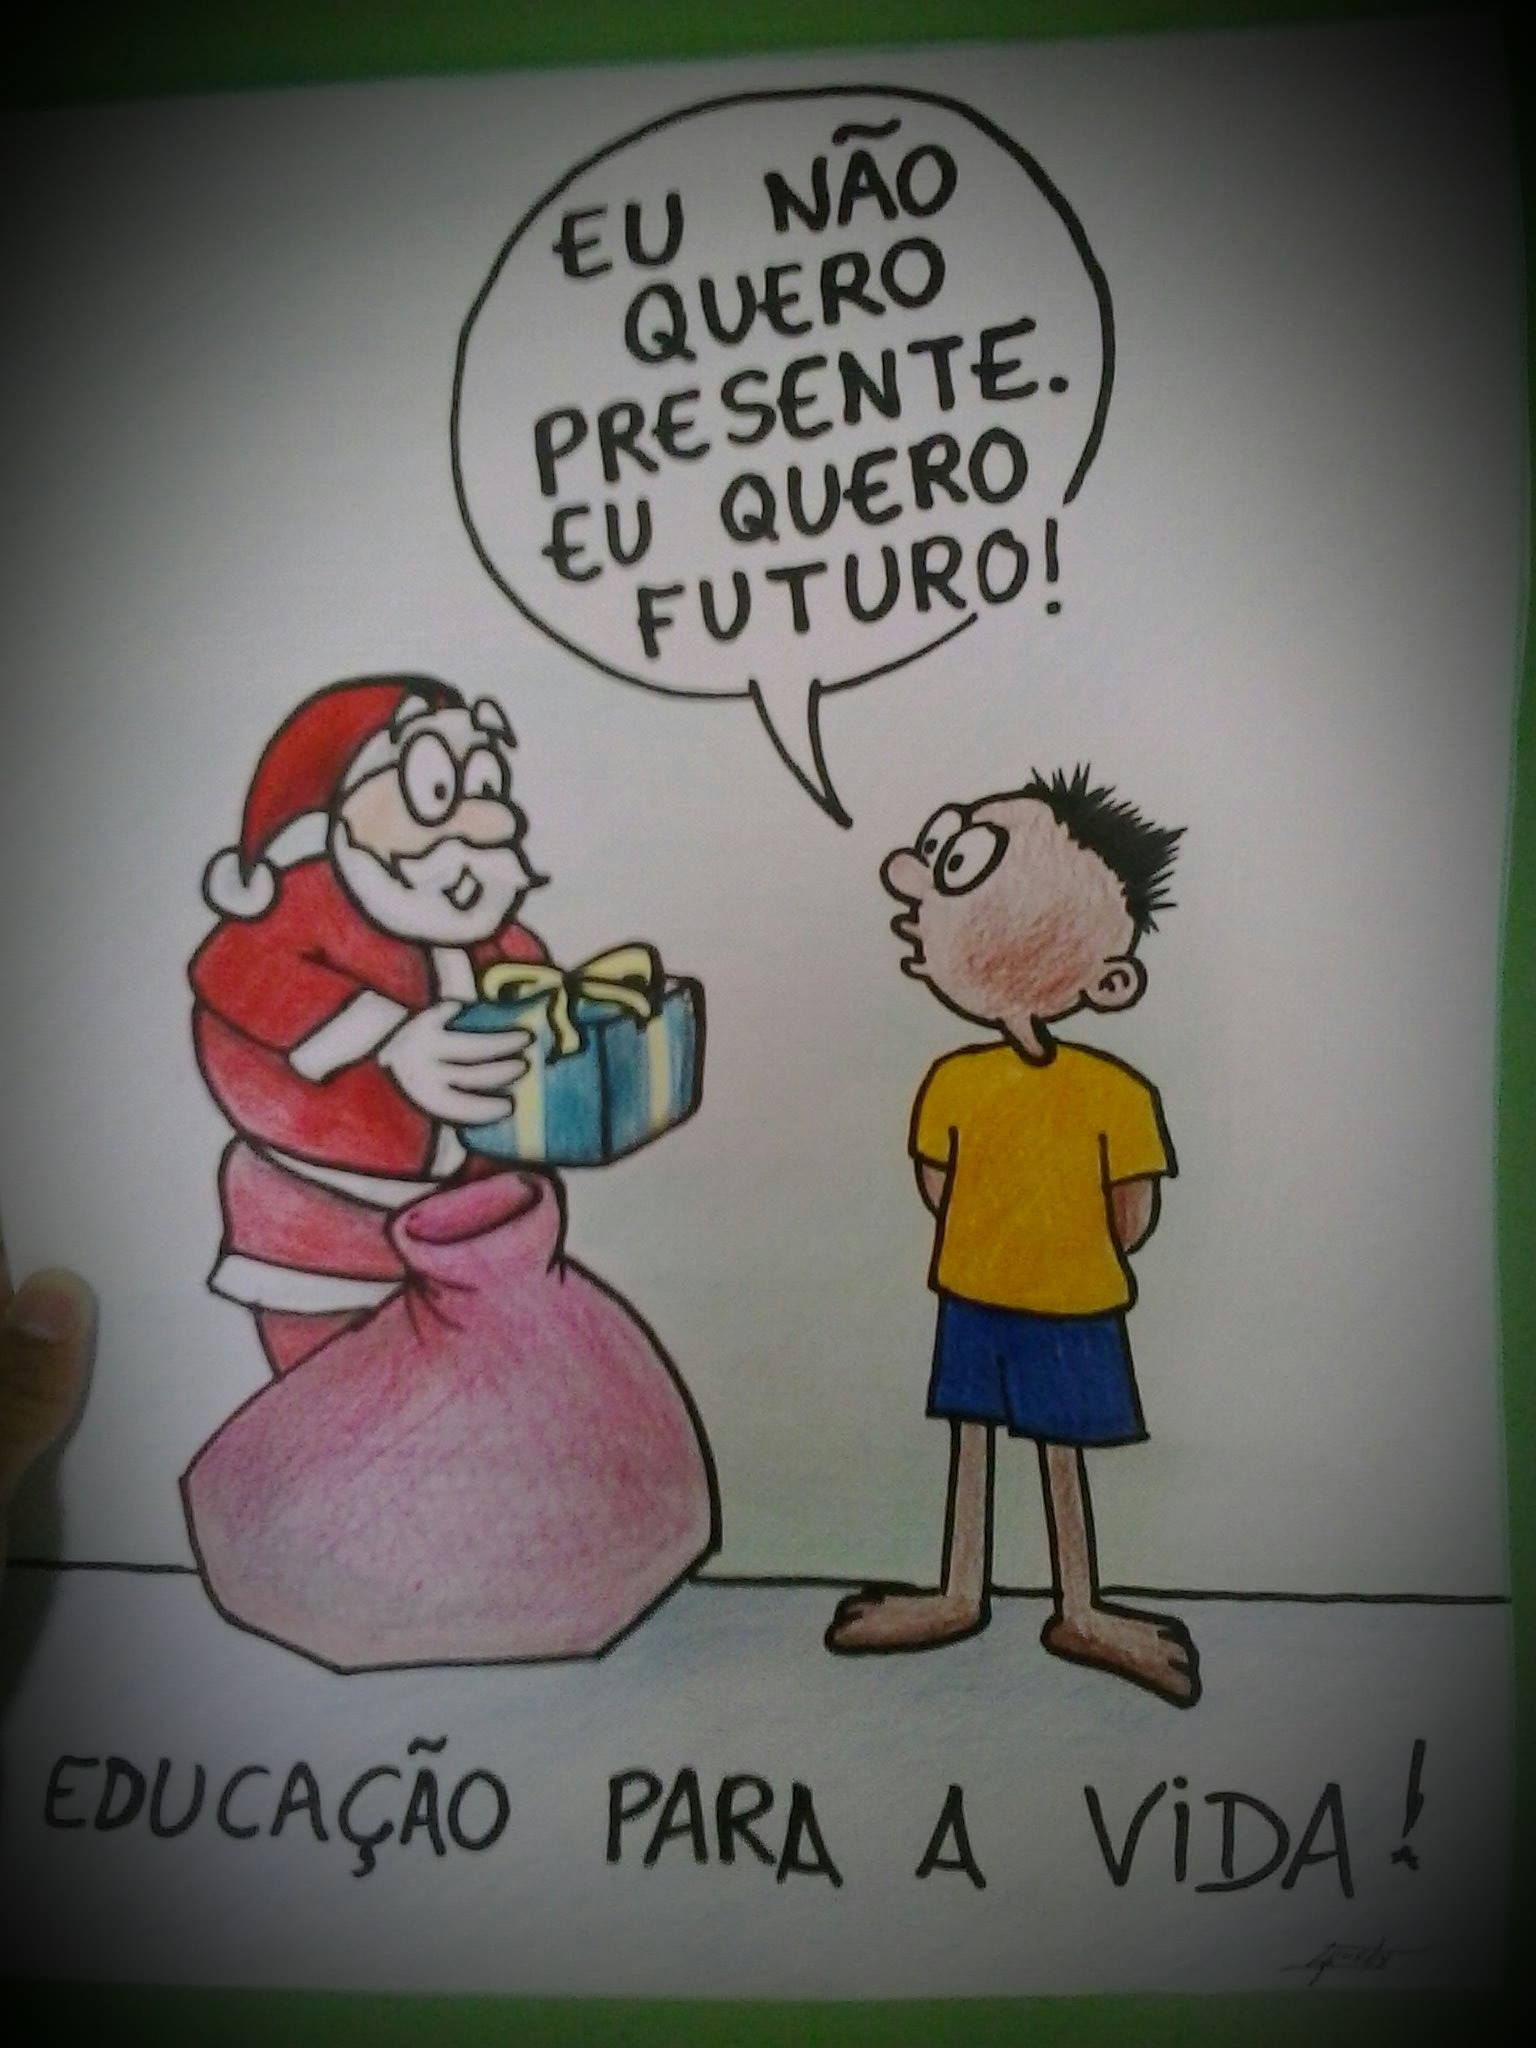 EU NÃO
QUERO
PRESENTE.
EU QUERO
FUTURO!
EDUCAÇÃO PARA A VIDA!